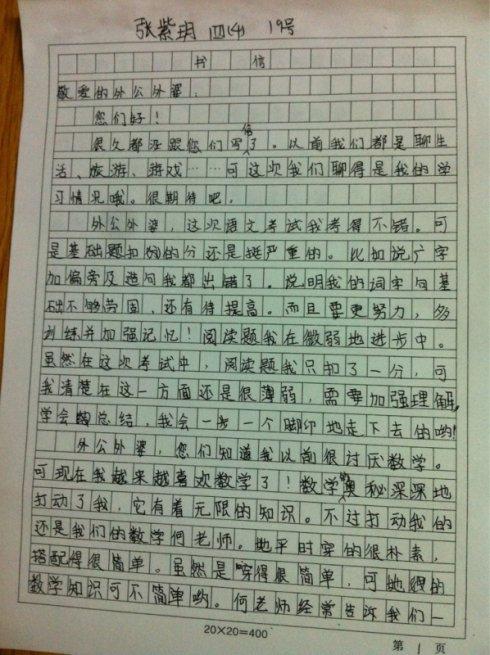 张紫玥 四(4) 19号
书信
敬爱的外公外婆：
您们好！
很久都没跟您们写信了。以前我们都是聊生
活、旅游、游戏……可这次我们聊得是我的学
习情况哦。很期待吧。
外公外婆，这次语文考试我考得不错。可
是基础题扣的分还是挺严重的。比如说广字
加偏旁及造句我都出错了。说明我的词字句基
础不够劳固，还有待提高。而且要更努力，多
训练并加强记忆！阅读题我在微弱地进步中。
虽然在这次考试中，阅读题我只扣了一分，可
我清楚在这一方面还是很薄弱，需要加强理解，
学会总结，我会一步一个脚印地走下去的哟！
外公外婆，您们知道我以前很讨厌数学。
可现在我越来越喜欢数学了！数学的奥秘深深地
打动了我，它有着无限的知识。不过打动我的
还是我们的数学何老师。她平时穿的很朴素，
搭配得很简单。虽然是穿得很简单，可她的
数学知识可不简单哟。何老师经常告诉我们一
20×20=400
第 1 页